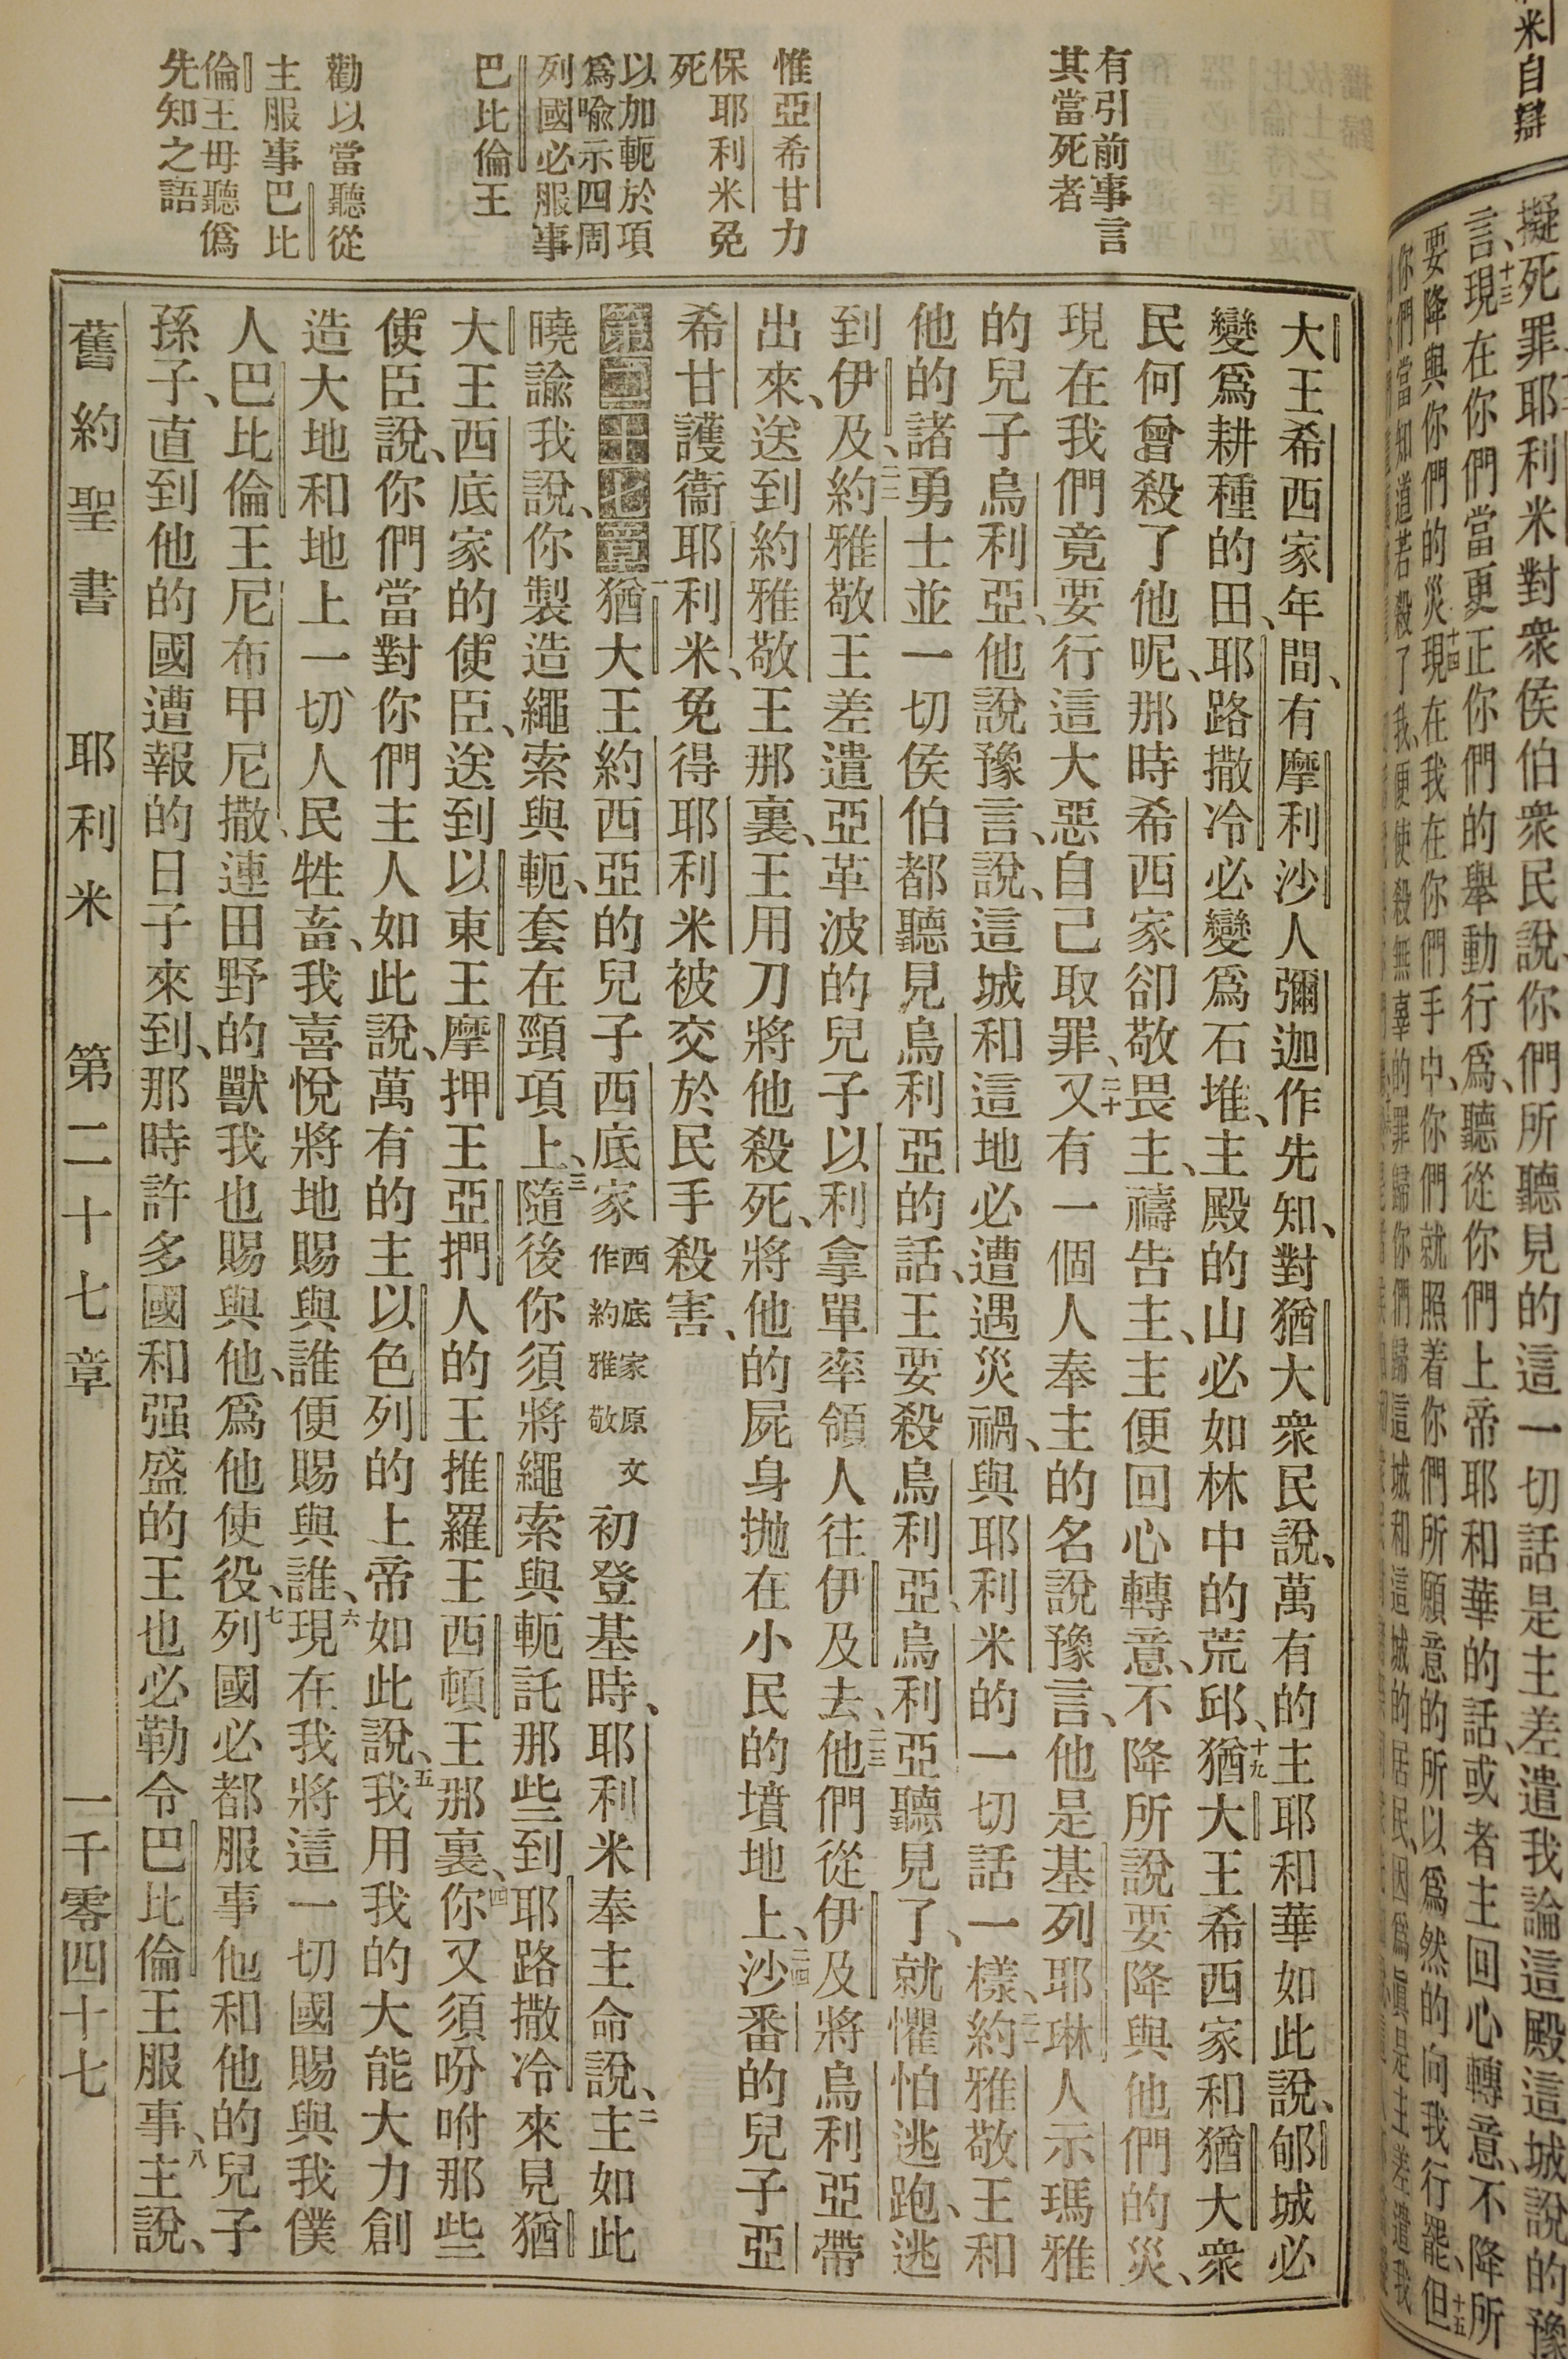 有引前事言
其當死者
惟亞希甘力
保耶利米免
死
以加軛於項
爲喻示四周
列國必服事
巴比倫王
勸以當聽從
主服事巴比
倫王毋聽僞
先知之語
大王希西家年間、有摩利沙人彌迦作先知、對猶大衆民說、萬有的主耶和華如此說、郇城必
變爲耕種的田、耶路撒冷必變爲石堆、主殿的山必如林中的荒邱、十九猶大王希西家和猶大衆
民何曾殺了他呢、那時希西家卻敬畏主、禱告主、主便回心轉意、不降所說要降與他們的災、
現在我們竟要行這大惡自己取罪、二十又有一個人奉主的名說豫言、他是基列耶琳人示瑪雅
的兒子烏利亞、他說豫言、說、這城和這地必遭遇災禍、與耶利米的一切話一樣、二一約雅敬王和
他的諸勇士並一切侯伯都聽見烏利亞的話、王要殺烏利亞、烏利亞聽見了、就懼怕逃跑、逃
到伊及、二二約雅敬王差遣亞革波的兒子以利拿單率領人往伊及去、二三他們從伊及將烏利亞帶
出來、送到約雅敬王那裏、王用刀將他殺死、將他的屍身抛在小民的墳地上、二四沙番的兒子亞
希甘護衞耶利米、免得耶利米被交於民手殺害、
第二十七章 一猶大王約西亞的兒子西底家西底家原文作約雅敬初登基時、耶利米奉主命說、二主如此
曉諭我說、你製造繩索與軛、套在頸項上、三隨後你須將繩索與軛託那些到耶路撒冷來見猶
大王西底家的使臣、送到以東王摩押王亞捫人的王推羅王西頓王那裏、四你又須吩咐那些
使臣說、你們當對你們主人如此說、萬有的主以色列的上帝如此說、五我用我的大能大力創
造大地和地上一切人民牲畜、我喜悅將地賜與誰便賜與誰、六現在我將這一切國賜與我僕
人巴比倫王尼布甲尼撒、連田野的獸我也賜與他、爲他使役、七列國必都服事他和他的兒子
孫子、直到他的國遭報的日子來到、那時許多國和强盛的王也必勒令巴比倫王服事、八主說、
舊約聖書 耶利米 第二十七章 一千零四十七
米自辯
擬死罪耶利米對衆侯伯衆民說、你們所聽見的這一切話是主差遣我論這殿這城說的豫
言、十三現在你們當更正你們的舉動行爲、聽從你們上帝耶和華的話、或者主回心轉意、不降所
要降與你們的災、十四現在我在你們手中、你們就照着你們所願意的所以爲然的向我行罷、十五但
你們當知道若殺了我、便使殺無辜的罪歸你們歸這城和這城的居民、因爲眞是主差遣我